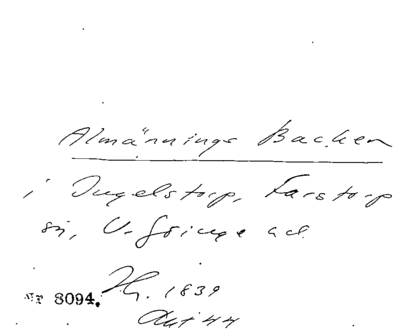 Almännings Backen
i Ingelstorp, Farstorp
sn, V. Göinge hd.
Hy. 1839
Nr 8094.
Akt 44